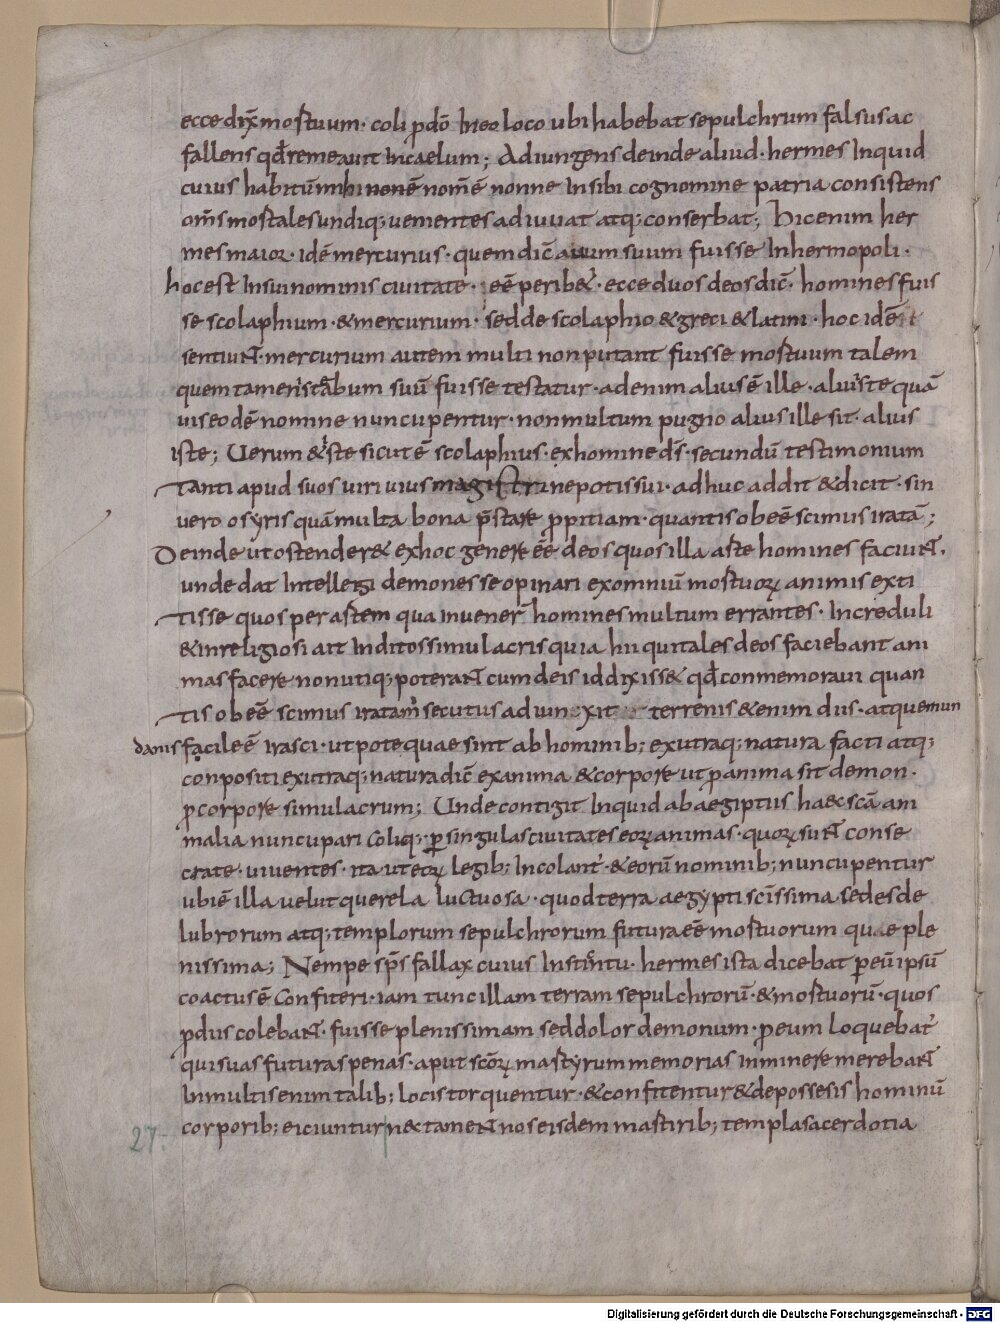 ecce dix̄ mortuum· coli pdō In eo loco ubi habebat sepulchrum falsus ac
fallens qđ remeauit In caelum; Adiungens deinde aliud· hermes Inquid
cuius habitū mihi nonē nom̄ ē nonne In sibi cognomine patria consistens
om̄s mortales undiq; uementes adiuuat atq; conserbat; Hic enim her
mes maior· idē mercurius· quem dic̄ auum suum fuisse In hermopoli·
hoc est In sui nominis ciuitate· eē perib&· ecce duos deos dic̄· homines fuis
se scolaphium· & mercurium· sed de scolaphio & greci & latini· hoc idē
sentiunt· mercurium autem multi non putant fuisse mortuum talem
quem tamen iste abum suū fuisse testatur· ad enim alius ē ille· alius iste quā
uis eodē nomine nuncupentur· non multum pugno alius ille sit· alius
iste; Uerum & iste sicut ē scolaphius· ex homine d̄s· secundū testimonium
tanti apud suos uiri uius magistri nepotis sui· adhuc addit & dicit· sin
uero osyris quā multa bona p̄stare ppitiam· quantis obeē scimus iratā;
Deinde ut ostender& ex hoc genere eē deos quos illa arte homines faciunt·
unde dat Intellegi demones se opinari ex omniū mortuoꝝ animis exti
tisse quos per artem qua inuener̄ homines multum errantes· Increduli
& inreligiosi ait Inditos simulacris quia hii qui tales deos faciebant ani
mas facere non utiq; poterant cum de is id dixiss& qđ conmemoraui quan
tis obeē scimus iratam secutus adiunxit terrenis & enim diis· atque mun
danis facile ē irasci· ut pote quae sint ab hominib; ex utraq; natura facti atq;
conpositi ex utraq; natura dic̄ ex anima & corpore ut p anima sit demon·
p corpore simulacrum; Unde contigit Inquid ab aegiptiis haec scā ani
malia nuncupari coliq; p singulas ciuitates eoꝝ animas· quoꝝ sunt conse
crate· uiuentes· ita ut eoꝝ legib; Incolant̄· & eorū nominib; nuncupentur
ubi ē illa uelut querela luctuosa· quod terra aegypti sc̄issima sedes de
lubrorum atq; templorum sepulchrorum futura eē mortuorum quae ple
nissima; Nempe sp̄s fallax cuius Instintu· hermes ista dicebat p eū ipsū
coactus ē confiteri· iam tunc illam terram sepulchrorū· & mortuorū· quos
p diis colebant· fuisse plenissimam sed dolor demonum· p eum loquebat̄
qui suas futuras penas· aput sc̄oꝝ martyrum memorias inminere merebant
In multis enim talib; locis torquentur· & confitentur & de possesis hominū
corporib; eiciuntur nec tamen nos eisdem martirib; templa sacerdotia
27·
Digitalisierung gefördert durch die Deutsche Forschungsgemeinschaft - DFG